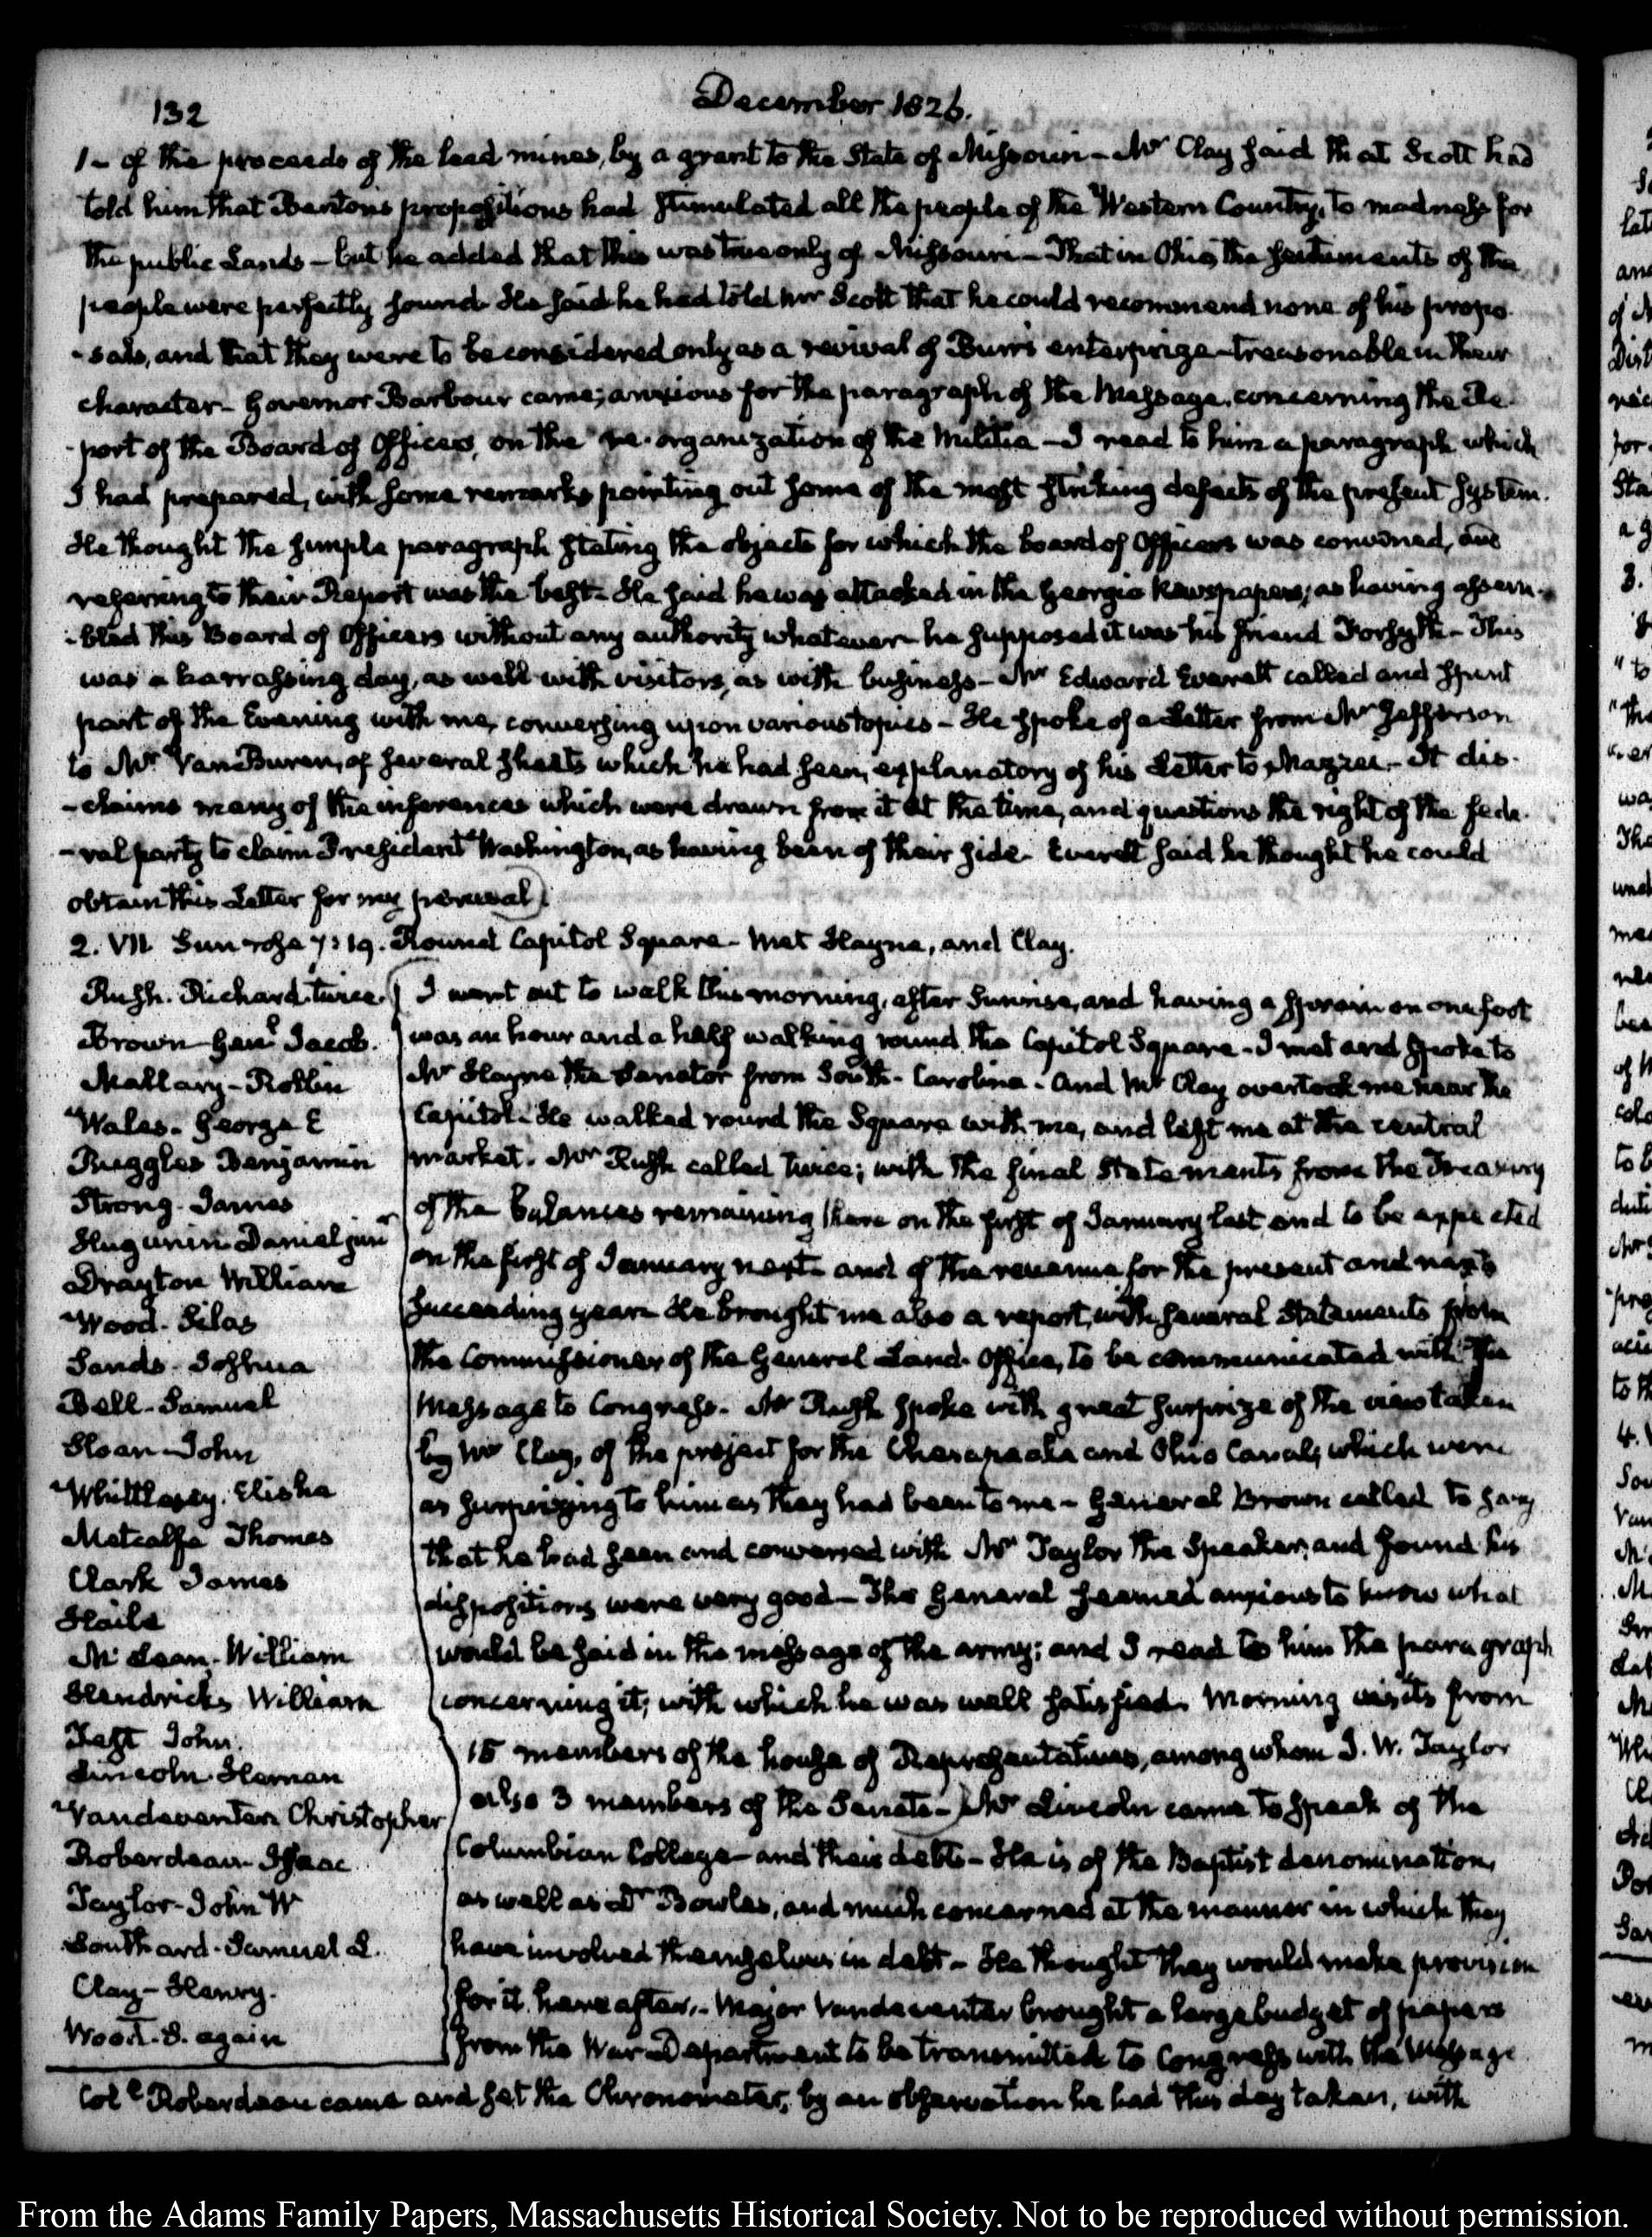 132
December 1826.
1 - of the proceeds of the lead mines, by a grant to the State of Missouri - Mr Clay said that Scott had
told him that Barton's propositions had stimulated all the people of the Western Country, to madness for
the public Lands - but he added that this was true only of Missouri - That in Ohio, the sentiments of the
people were perfectly sound. He said he had told Mr Scott that he could recommend none of his propo-
-sals, and that they were to be considered only as a revival of Burr's enterprize - treasonable in their
character - Governor Barbour came; anxious for the paragraph of the Message, concerning the Re-
-port of the Board of Officers, on the re-organization of the Militia - I read to him a paragraph which
I had prepared, with some remarks pointing out some of the most striking defects of the present system.
He thought the simple paragraph stating the objects for which the board of Officers was convened, and
referring to their Report was the best - He said he was attacked in the Georgia Newspapers, as having assem-
-bled this Board of Officers without any authority whatever - he supposed it was his friend Forsyth - This
was a harrassing day, as well with visitors, as with business - Mr Edward Everett called and spent
part of the Evening with me, conversing upon various topics - He spoke of a Letter from Mr Jefferson
to Mr Van Buren, of several sheets which he had seen, explanatory of his Letter to Mazzei - It dis-
-claims many of the inferences which were drawn from it at the time, and questions the right of the fede-
-ral party to claim President Washington, as having been of their side. Everett said he thought he could
obtain this Letter for my perusal)
2. VII. Sun rose 7:19. Round Capitol Square - Met Hayne, and Clay.
Rush. Richard. twice.
Brown Genl Jacob.
Mallary - Rollin
Wales - George E
Ruggles Benjamin
Strong - James
Hugunin Daniel junr
Drayton William
Wood - Silas
Sands - Joshua
Bell - Samuel
Sloan - John
Whittlesey. Elisha
Metcalfe Thomas
Clark James
Haile
McLean - William
Hendricks William
Test John.
Lincoln Heman
Vandeventer Christopher
Roberdeau - Isaac
Taylor - John W
Southard - Samuel L.
Clay - Henry.
Wood - S. again
(I went out to walk this morning, after Sunrise, and having a sprain on one foot
was an hour and a half walking round the Capitol Square - I met and spoke to
Mr Hayne the Senator from South-Carolina - and Mr Clay overtook me near the
Capitol - He walked round the Square with me, and left me at the central
market. Mr Rush called twice; with the final Statements from the Treasury
of the balances remaining there on the first of January last and to be expected
on the first of January next - and of the revenue for the present and next
succeeding year - He brought me also a report, with several Statements from
the Commissioner of the General Land Office, to be communicated with the
Message to Congress. Mr Rush spoke with great surprize of the views taken
by Mr Clay, of the project for the Chesapeake and Ohio Canal, which were
as surprizing to him as they had been to me - General Brown called to say
that he had seen and conversed with Mr Taylor the Speaker, and found his
dispositions were very good - The General seemed anxious to know what
would be said in the message of the army; and I read to him the paragraph
concerning it; with which he was well satisfied. Morning visits from
15 members of the house of Representatives, among whom J. W. Taylor
also 3 members of the Senate -) Mr Lincoln came to speak of the
Columbian College - and their debts - He is of the Baptist denomination,
as well as Dr Bowles, and much concerned at the manner in which they
have involved themselves in debt - He thought they would make provision
for it hereafter. - Major Vandeventer brought a large budget of papers
from the War Department to be transmitted to Congress with the Message
Coll Roberdeau came and set the Chronometer, by an observation he had this day taken, with
From the Adams Family Papers, Massachusetts Historical Society. Not to be reproduced without permission.